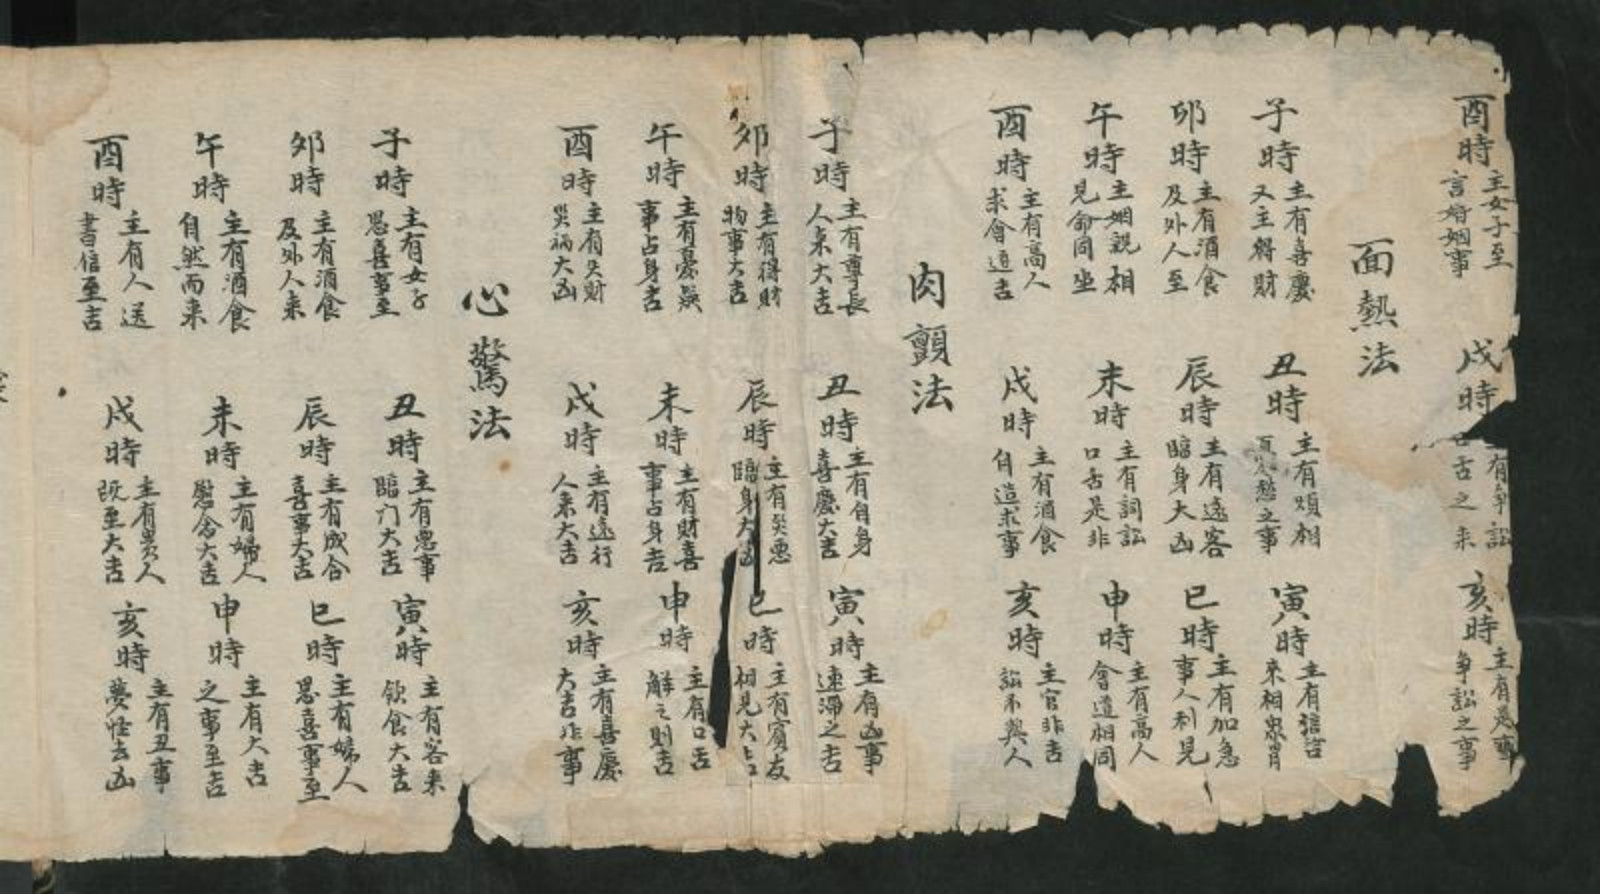 酉時 主女子至言婚姻事 戌時 有爭訟口舌之来 亥時 主有是事爭訟之事
面熱法
子時 主有喜慶又主得財 丑時 主有煩相愁之事 寅時 主有信
卯時 主有酒食及外人至 辰時 主有遠客臨身大凶 巳時 主有加急事人利見
午時 主姻親相見命同坐 未時 主有詞訟口舌是非 申時 主有高人會道相同
酉時 主有高人求會道吉 戌時 主有酒食自造求事 亥時 主官非吉訟不與人
肉顫法
子時 主有尊長人来大吉 丑時 主有自身喜慶大吉 寅時 主有凶事速滯之吉
卯時 主有得財物事大吉 辰時 主有災惡臨身大凶 巳時 主有賓友相見大吉
午時 主有憂疑事占身吉 未時 主有財喜事占身吉 申時 主有口舌解之則吉
酉時 主有失財災禍大凶 戌時 主有遠行人来大吉 亥時 主有喜慶大吉非事
心驚法
子時 主有女子思喜事至 丑時 主有惡事臨门大吉 寅時 主有客来飲食大吉
卯時 主有酒食及外人来 辰時 主有成合喜事大吉 巳時 主有婦人思喜事至
午時 主有酒食自然而来 未時 主有婦人慰念大吉 申時 主有大吉之事至吉
酉時 主有人送書信至吉 戌時 主有貴人既至大吉 亥時 主有丑事夢怪去凶